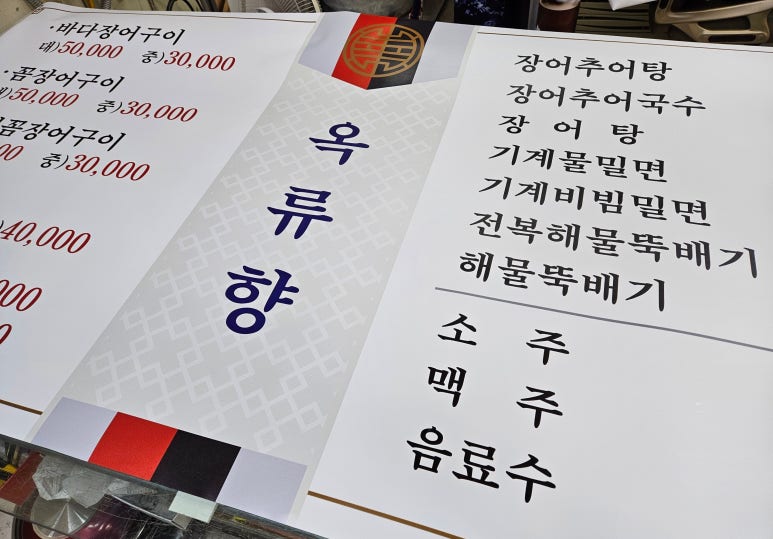 ·바다장어구이
대)50,000 중)30,000
·꼼장어구이
50,000 중)30,000
꼼장어구이
중)30,000
40,000
옥류향
장어추어탕
장어추어국수
장 어 탕
기계물밀면
기계비빔밀면
전복해물뚝배기
해물뚝배기
소 주
맥 주
음료수